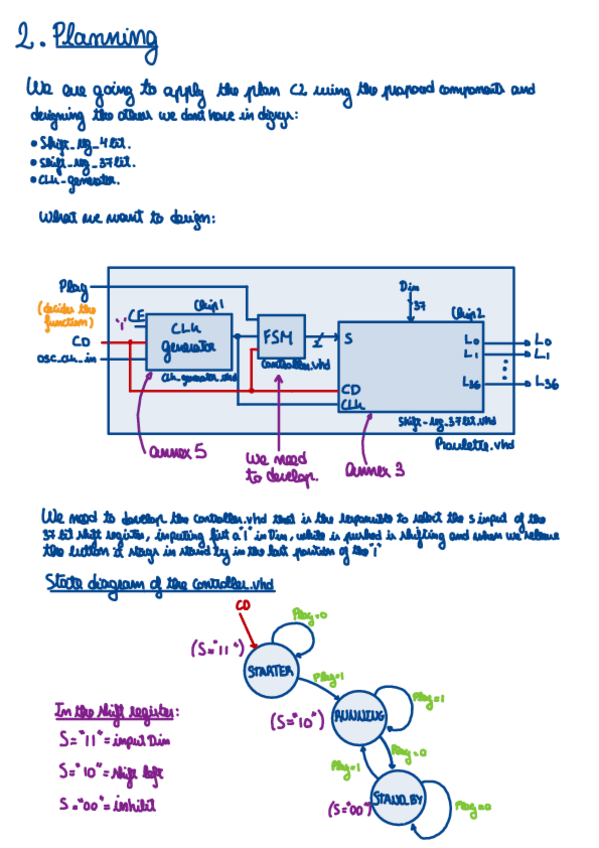 2. Planning
We are going to apply the plan C2 using the proposed components and
designing the others we dont have in digsys:
• Shift_reg_4bit.
• Shift_reg_37bit.
• CLK_generator.
What we want to design:
Play
(decides the
function)
CD
osc_clk_in
"1"
CE
Chip1
CLK
generator
clk_generator.vhd
FSM
controller.vhd
2
Din
37
Chip2
S
CD
CLK
L0
L1
L36
shift_reg_37bit.vhd
L0
L1
L36
Roulette.vhd
annex 5
We need
to develop.
annex 3
We need to develop the controller.vhd that is the responsible to select the s input of the
37 bit shift register, inputing first a "1" in Din, while is pushed is shifting and when we release
the button it stays in stand by in the last position of the "1"
State diagram of the controller.vhd
CD
Play=0
(S="11")
STARTER
Play=1
In the shift register:
(S="10")
RUNNING
Play=1
S="11"=input Din
Play=0
S="10"=shift left
Play=1
S="00"=inhibit
(S="00")
STAND.BY
Play=0